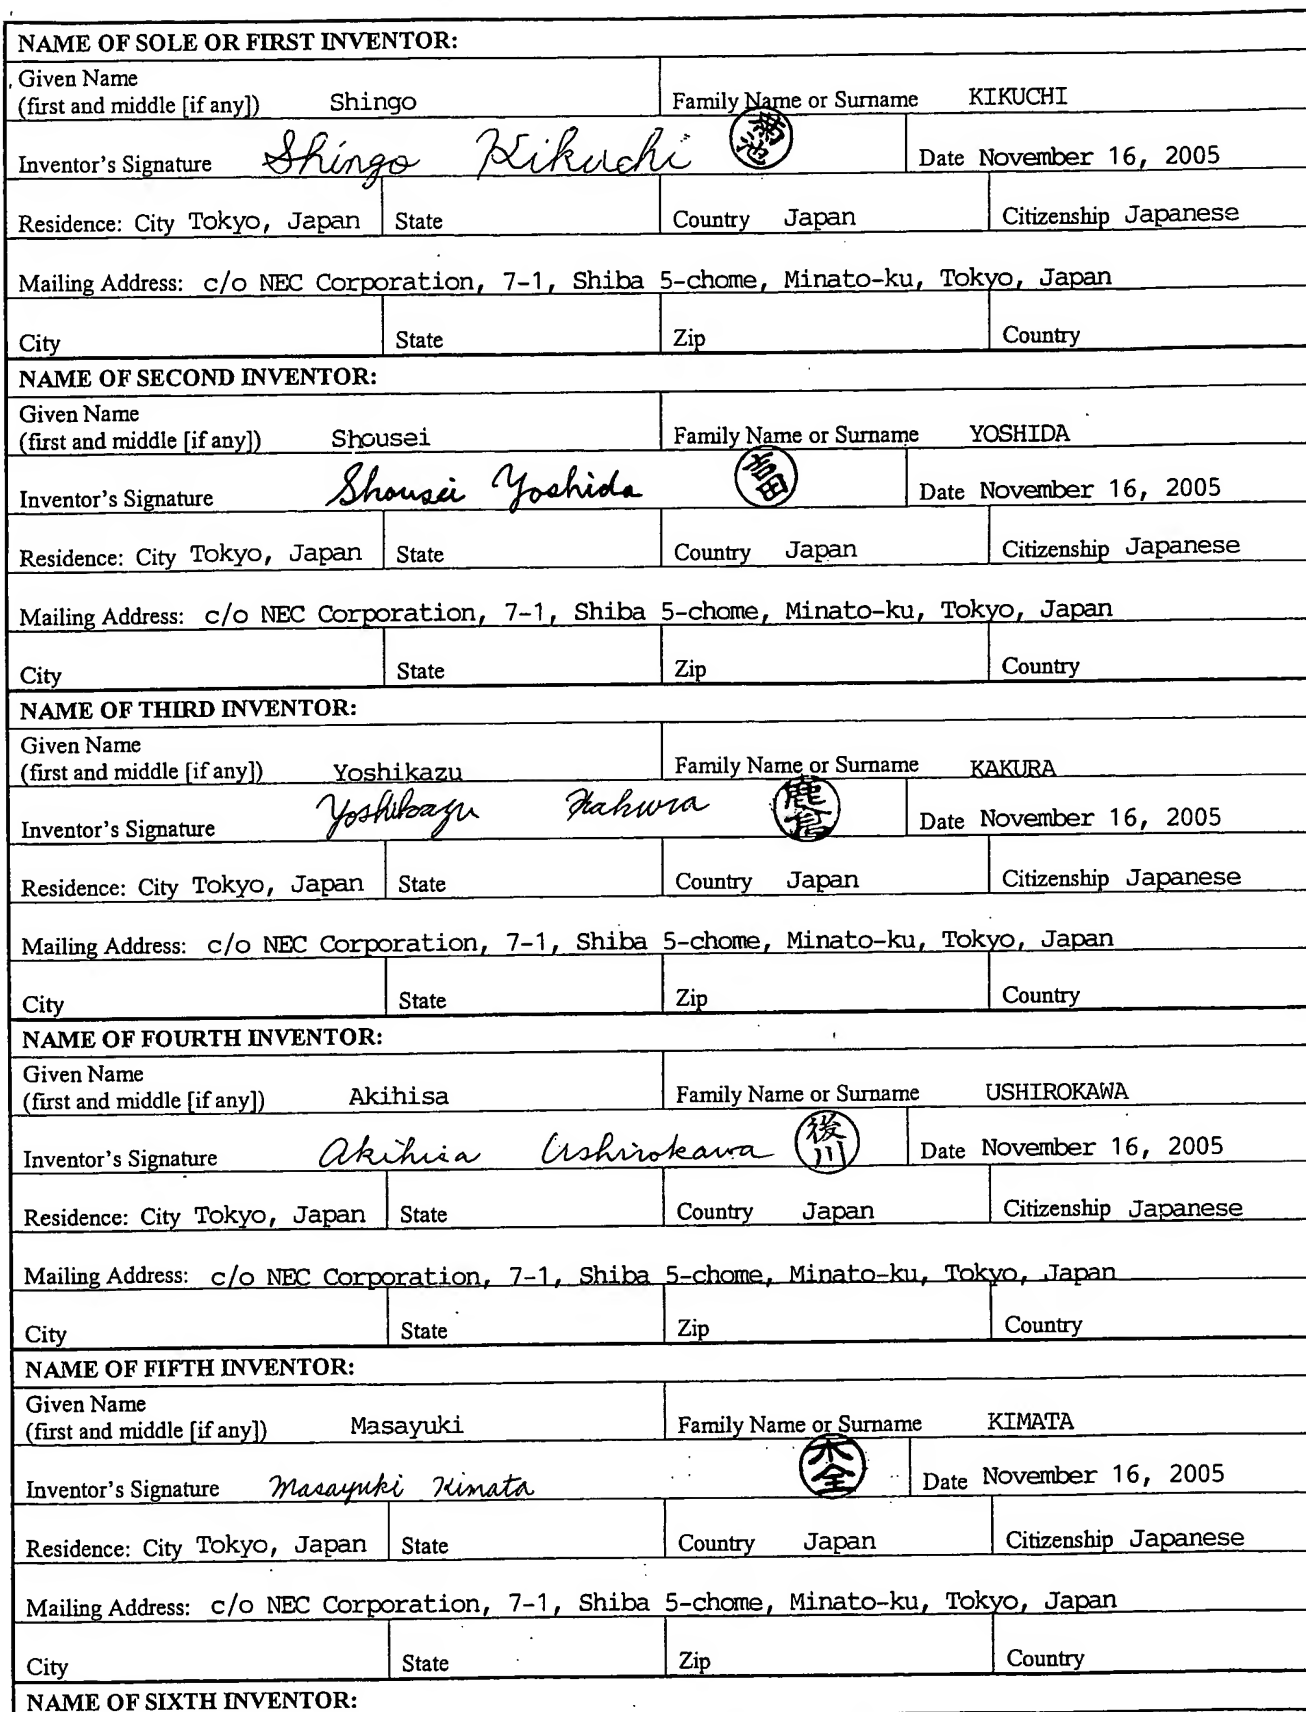 NAME OF SOLE OR FIRST INVENTOR:
Given Name
(first and middle [if any]) Shingo Family Name or Surname KIKUCHI
Inventor's Signature Shingo Kikuchi 菊池 Date November 16, 2005
Residence: City Tokyo, Japan State Country Japan Citizenship Japanese
Mailing Address: c/o NEC Corporation, 7-1, Shiba 5-chome, Minato-ku, Tokyo, Japan
City State Zip Country
NAME OF SECOND INVENTOR:
Given Name
(first and middle [if any]) Shousei Family Name or Surname YOSHIDA
Inventor's Signature Shousei Yoshida 吉田 Date November 16, 2005
Residence: City Tokyo, Japan State Country Japan Citizenship Japanese
Mailing Address: c/o NEC Corporation, 7-1, Shiba 5-chome, Minato-ku, Tokyo, Japan
City State Zip Country
NAME OF THIRD INVENTOR:
Given Name
(first and middle [if any]) Yoshikazu Family Name or Surname KAKURA
Inventor's Signature Yoshikazu Kakura 鹿倉 Date November 16, 2005
Residence: City Tokyo, Japan State Country Japan Citizenship Japanese
Mailing Address: c/o NEC Corporation, 7-1, Shiba 5-chome, Minato-ku, Tokyo, Japan
City State Zip Country
NAME OF FOURTH INVENTOR:
Given Name
(first and middle [if any]) Akihisa Family Name or Surname USHIROKAWA
Inventor's Signature Akihisa Ushirokawa 後川 Date November 16, 2005
Residence: City Tokyo, Japan State Country Japan Citizenship Japanese
Mailing Address: c/o NEC Corporation, 7-1, Shiba 5-chome, Minato-ku, Tokyo, Japan
City State Zip Country
NAME OF FIFTH INVENTOR:
Given Name
(first and middle [if any]) Masayuki Family Name or Surname KIMATA
Inventor's Signature Masayuki Kimata 木全 Date November 16, 2005
Residence: City Tokyo, Japan State Country Japan Citizenship Japanese
Mailing Address: c/o NEC Corporation, 7-1, Shiba 5-chome, Minato-ku, Tokyo, Japan
City State Zip Country
NAME OF SIXTH INVENTOR: